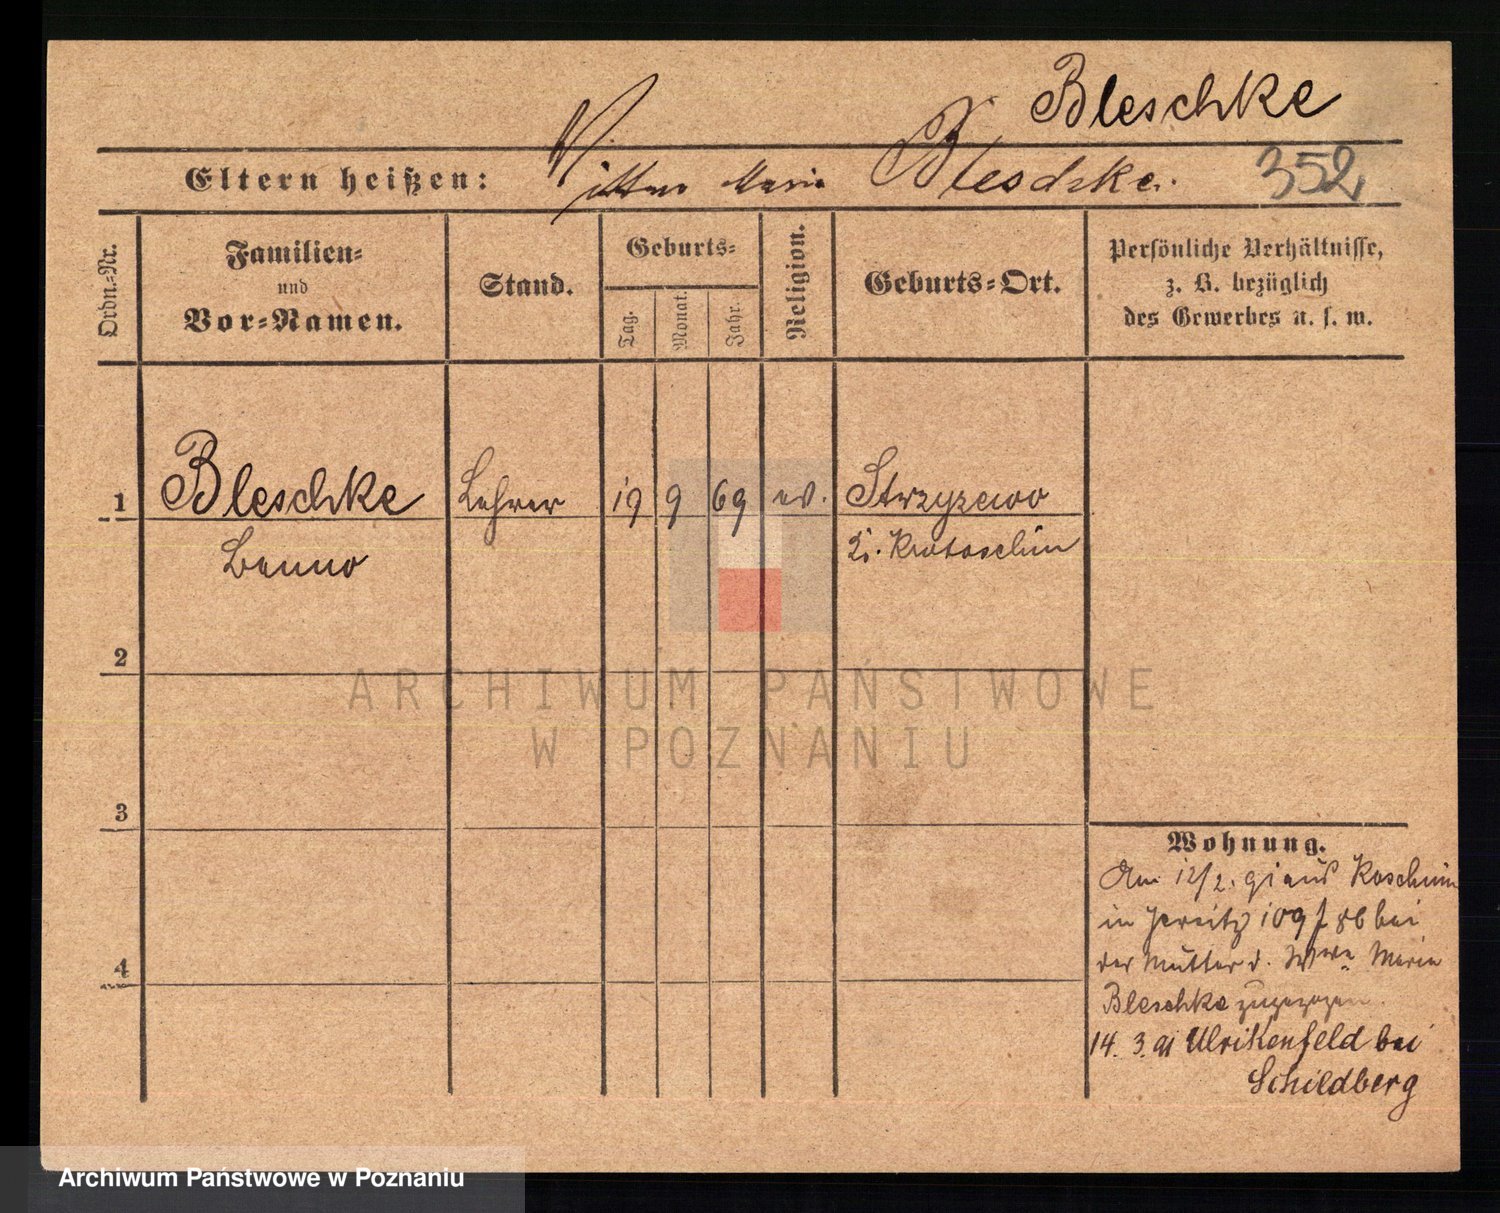 Bleschke
Eltern heißen: Mutter Marie Bleschke. 352
Ordn.-Nr.
Familien-
und
Vor-Namen.
Stand.
Geburts-
Tag.
Monat.
Jahr.
Religion.
Geburts-Ort.
Persönliche Verhältnisse,
z. B. bezüglich
des Gewerbes u. s. w.
1 Bleschke Lehrer 19 9 69 ev. Strzyzewo
Benno Kr. Krotoschin
2
ARCHIWUM PAŃSTWOWE
W POZNANIU
3
4
Wohnung.
Am 12/2. 91 aus Koschmin
in Jersitz 109 bei
der Mutter d. Wwe Marie
Bleschke zugezogen.
14. 3. 91 Ulrikenfeld bei
Schildberg
Archiwum Państwowe w Poznaniu